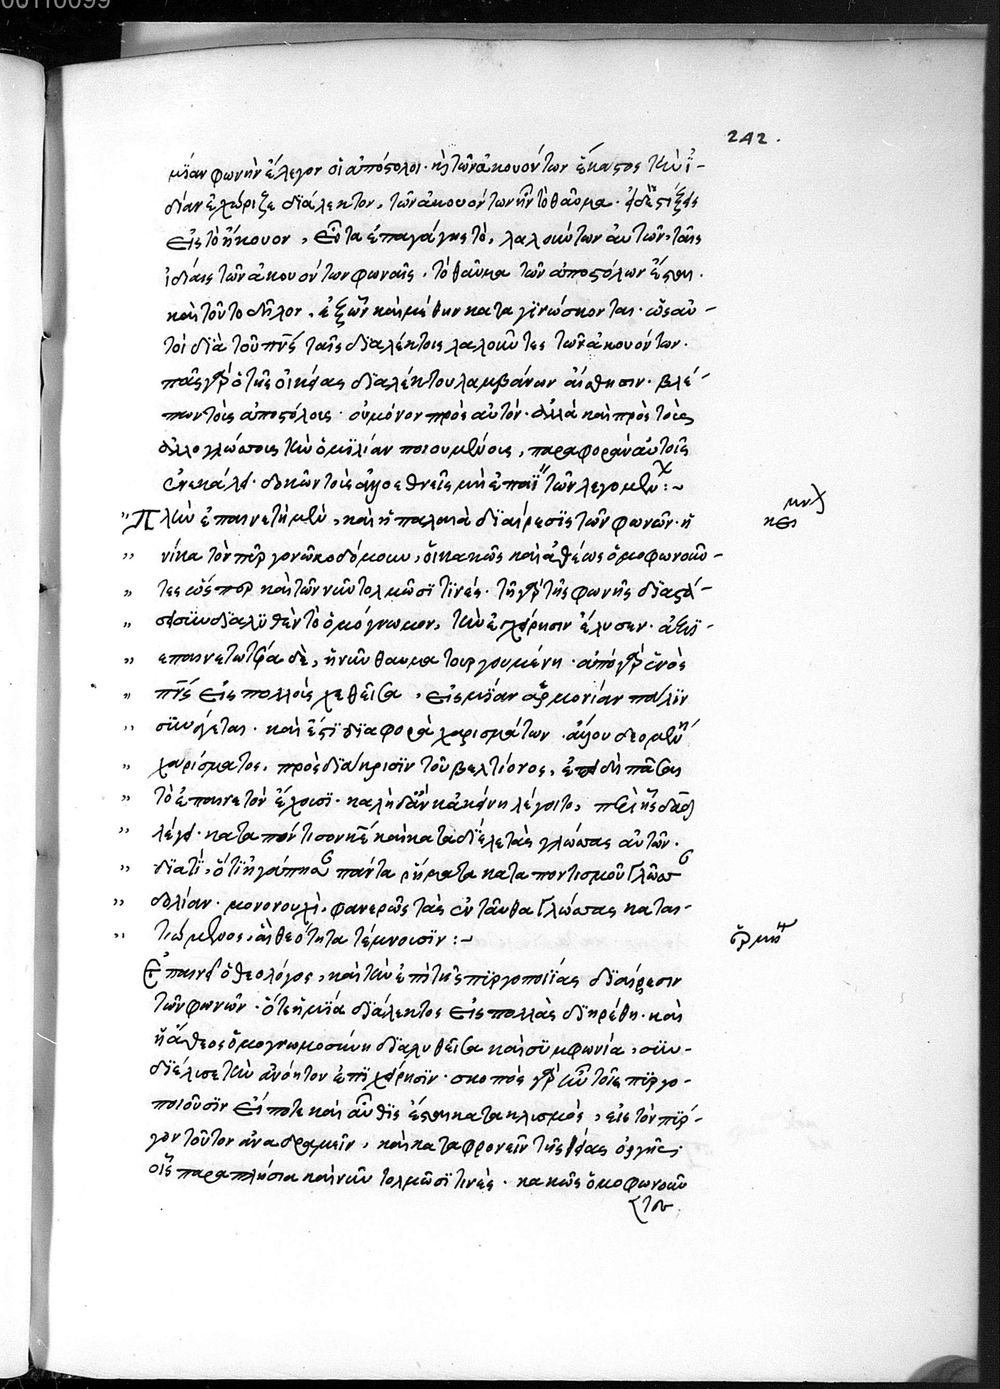 00110099
242.
μίαν φωνὴν ἔλεγον οἱ ἀπόστολοι· καὶ τῶν ἀκουόντων ἕκαστος τὴν ἰ-
δίαν ἐγνώριζε διάλεκτον, τῶν ἀκουόντων ἦν τὸ θαῦμα· εἰ δὲ στίξεις
εἰς τὸ ἤκουον, εἶτα ἐπαγάγῃς τὸ, λαλούντων αὐτῶν, ταῖς
ἰδίαις τῶν ἀκουόντων φωναῖς, τὸ θαῦμα τῶν ἀποστόλων ἔσται.
καὶ τοῦτο δῆλον, ἐξ ὧν καὶ μέθην καταγινώσκονται· ὡς αὐ-
τοὶ διὰ τοῦ πνς ταῖς διαλέκτοις λαλοῦντες τῶν ἀκουόντων.
πᾶς γὰρ ὁ τῆς οἰκείας διαλέκτου λαμβάνων αἴσθησιν· βλέ-
πων τοὺς ἀποστόλους· οὐ μόνον πρὸς αὐτόν· ἀλλὰ καὶ πρὸς τοὺς
ἀλλογλώσσους τὴν ὁμιλίαν ποιουμένους, παραφορὰν αὐτοῖς
ἐνεκάλει· οὐκ ὢν τοὺς ἀλλοεθνεῖς μὴ ἐπαΐειν τῶν λεγομένων:~
" Πλὴν ἐπαινετὴ μὲν, καὶ ἡ παλαιὰ διαίρεσις τῶν φωνῶν· ἡ-
" νίκα τὸν πύργον ὠκοδόμουν, οἱ κακῶς καὶ ἀθέως ὁμοφωνοῦν-
" τες ὥσπερ καὶ τῶν νῦν τολμῶσί τινές· τῇ γὰρ τῆς φωνῆς διαστά-
" σει συνδιαλυθὲν τὸ ὁμόγνωμον, τὴν ἐγχείρησιν ἔλυσεν· ἀξιε-
" παινετωτέρα δὲ, ἡ νῦν θαυματουργουμένη· ἀπὸ γὰρ ἑνὸς
" πνς εἰς πολλοὺς χεθεῖσα, εἰς μίαν ἁρμονίαν πάλιν
" συνάγεται· καὶ ἔστι διαφορὰ χαρισμάτων ἄλλου δεομένη
" χαρίσματος, πρὸς διάκρισιν τοῦ βελτίονος, ἐπειδὴ πᾶσαι
" τὸ ἐπαινετὸν ἔχουσι· καλὴ δ' ἂν κἀκείνη λέγοιτο, περὶ ἧς δαδ
" λέγει· καταπόντισον κε καὶ καταδίελε τὰς γλώσσας αὐτῶν.
" διατί, ὅτι ἠγάπησαν πάντα ῥήματα καταποντισμοῦ γλῶσσ
" δολίαν· μονονουχὶ, φανερῶς τὰς ἐνταῦθα γλώσσας καται-
" τιώμενος, αἳ θεότητα τέμνουσιν:~
Ἐπαινεῖ ὁ θεολόγος, καὶ τὴν ἐπὶ τῆς πυργοποιίας διαίρεσιν
τῶν φωνῶν· ὅτε ἡ μία διάλεκτος εἰς πολλὰς διῃρέθη· καὶ
ἡ ἄθεος ὁμογνωμοσύνη διαλυθεῖσα καὶ συμφωνία, συν-
διέλυσε τὴν ἀνόητον ἐπιχείρησιν· σκοπὸς γὰρ ἦν τοῖς πυργο-
ποιοῦσιν εἴποτε καὶ αὖθις ἔσται κατακλυσμὸς, εἰς τὸν πύρ-
γον τοῦτον ἀναδραμεῖν, καὶ καταφρονεῖν τῆς θείας ὀργῆς·
οἷς παραπλήσια καὶ νῦν τολμῶσί τινές· κακῶς ὁμοφωνοῦν